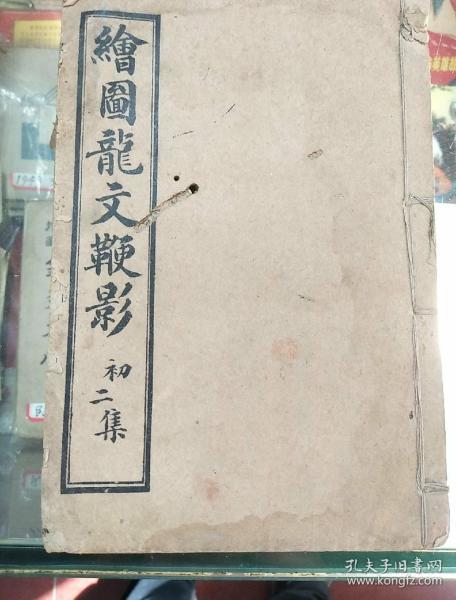 繪圖龍文鞭影
初二集
孔夫子旧书网
www.kongfz.com